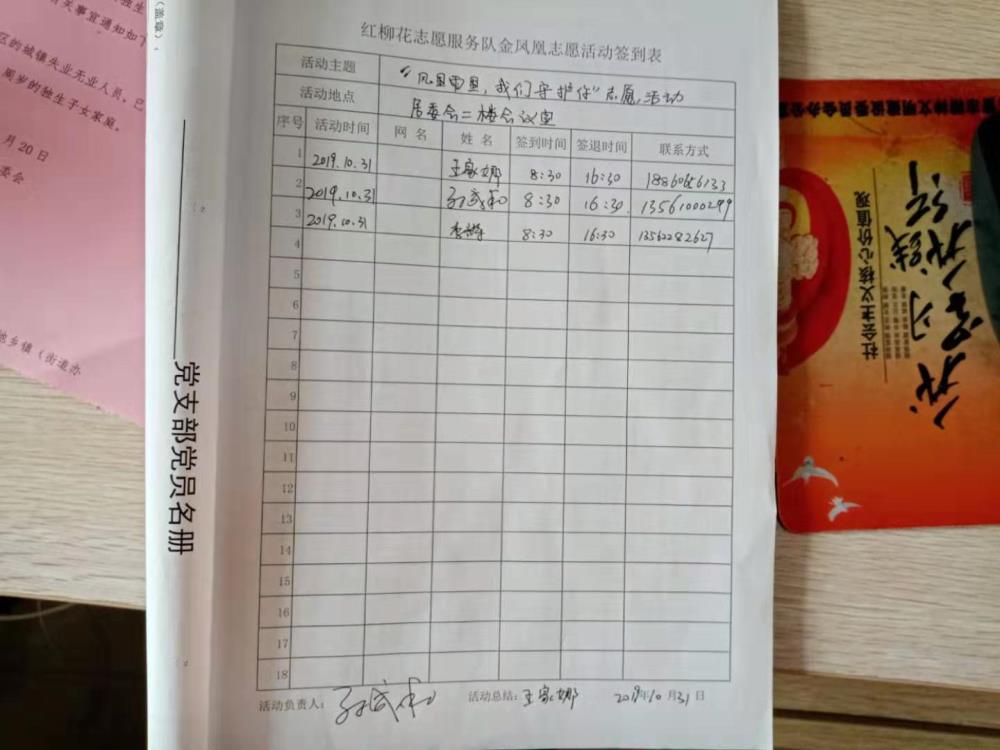 红柳花志愿服务队金凤凰志愿活动签到表
活动主题 “风里雨里,我们守护你”志愿活动
活动地点 居委会二楼会议室
序号 活动时间 网名 姓名 签到时间 签退时间 联系方式
1 2019.10.31 王家娜 8:30 16:30
2 2019.10.31 孙成和 8:30 16:30 13561000299
3 2019.10.31 8:30 16:30 13562282627
4
5
6
7
8
9
10
11
12
13
14
15
16
17
18
活动负责人: 孙成和 活动总结: 王家娜 2019年10月31日
党支部党员名册
(盖章)
有关事宜通知如下
区的城镇失业无业人员,已
周岁的独生子女家庭。
月20日
委会
地乡镇(街道办
社会主义核心价值观
我学习 我践行
精神文明建设委员会办公室